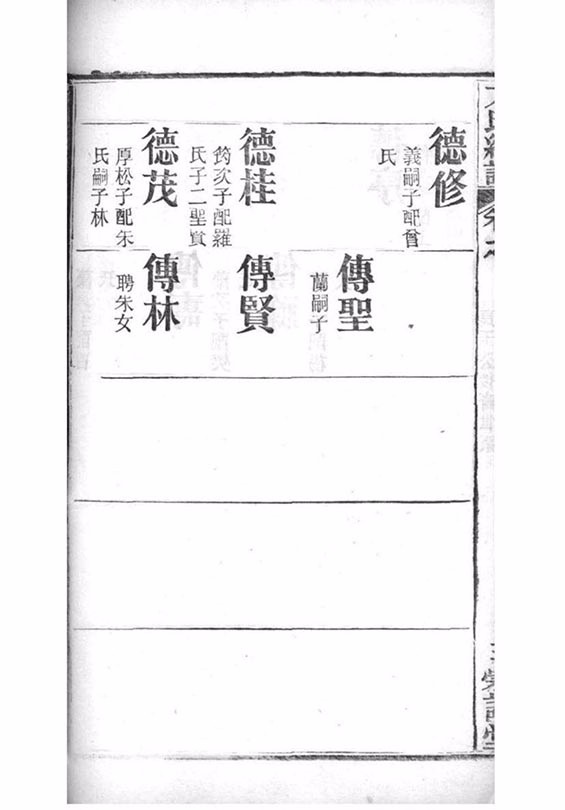 德修
義嗣子配曾
氏
傳聖
蘭嗣子
德桂
筠次子配羅
氏子二聖賢
傳賢
德茂
厚松子配朱
氏嗣子林
傳林
聘朱女